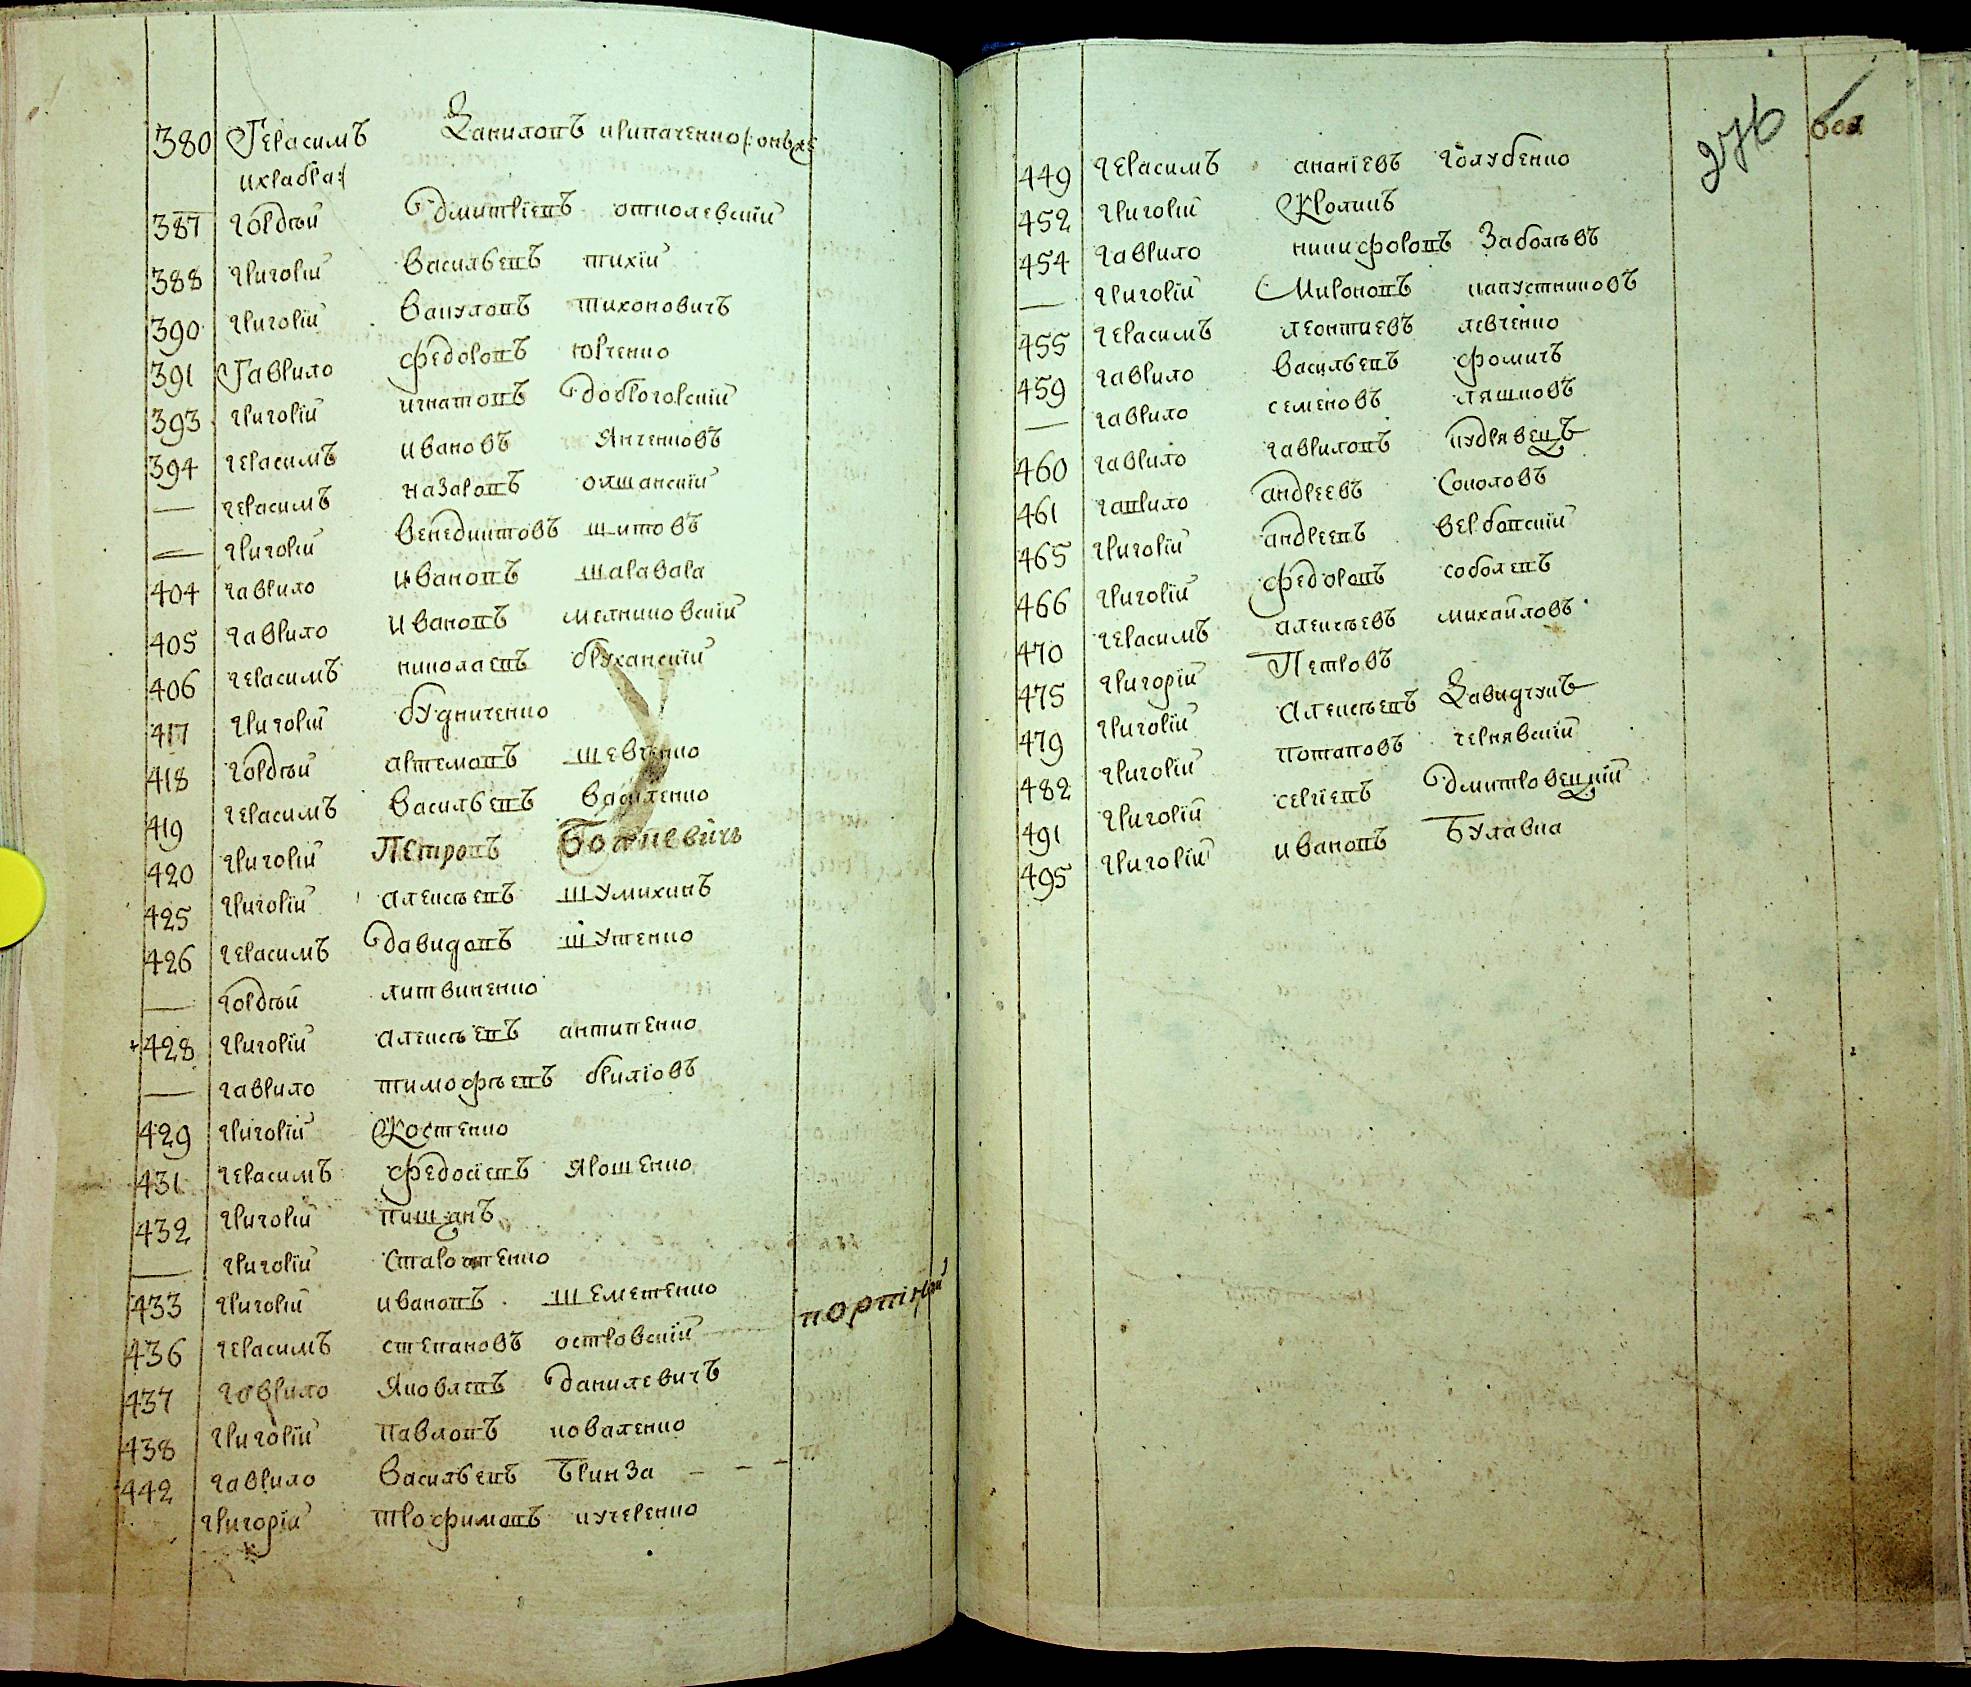 380 Герасимъ Даниловъ криваченко /: онъ же
и храбра :/
387 гордѣй дмитріевъ отколевскій
388 григорій Васильевъ тихій
390 григорій Вакуловъ тихоновичъ
391 Гаврило федоровъ юрченко
393 григорій игнатовъ доброгорскій
394 герасимъ ивановъ Янченковъ
— герасимъ назаровъ олшанскій
— григорій Венедиктовъ шитовъ
404 гаврило ивановъ шаравара
405 гаврило ивановъ мелниковскій
406 герасимъ николаевъ бруханскій
417 григорій будниченко
418 гордѣй артемовъ шевченко
419 герасимъ Васильевъ Василенко
420 григорій Петровъ Божкевичь
425 григорій алексѣевъ шумихинъ
426 герасимъ давидовъ шутенко
— гордѣй литвиненко
428 григорій алексѣевъ антипенко
— гаврило тимофѣевъ бриліовъ
429 григорій Костенко
431 герасимъ федосіевъ Ярошенко
432 григорій пищанъ
— григорій
433 григорій ивановъ шеметенко
436 герасимъ степановъ островскій портікой
437 гаврило Яковлевъ данилевичъ
438 григорій павловъ коваленко
442 гаврило Васильевъ бринза
григорій трофимовъ кучеренко
276 боя
449 герасимъ ананіевъ голубенко
452 григорій Кроликъ
454 гаврило никифоровъ Заболѣвъ
— григорій Мироновъ капустниковъ
455 герасимъ леонтиевъ левченко
459 гаврило Васильевъ фомичъ
— гаврило семеновъ ляшковъ
460 гаврило гавриловъ кудрявецъ
461 гаврило андреевъ Соколовъ
465 григорій андреевъ вербовскій
466 григорій федоровъ соболевъ
470 герасимъ алексѣевъ михайловъ
475 григорій Петровъ
479 григорій Алексѣевъ Давидчукъ
482 григорій потаповъ чернявскій
491 григорій сергіевъ дмитровецкій
495 григорій ивановъ Булавка